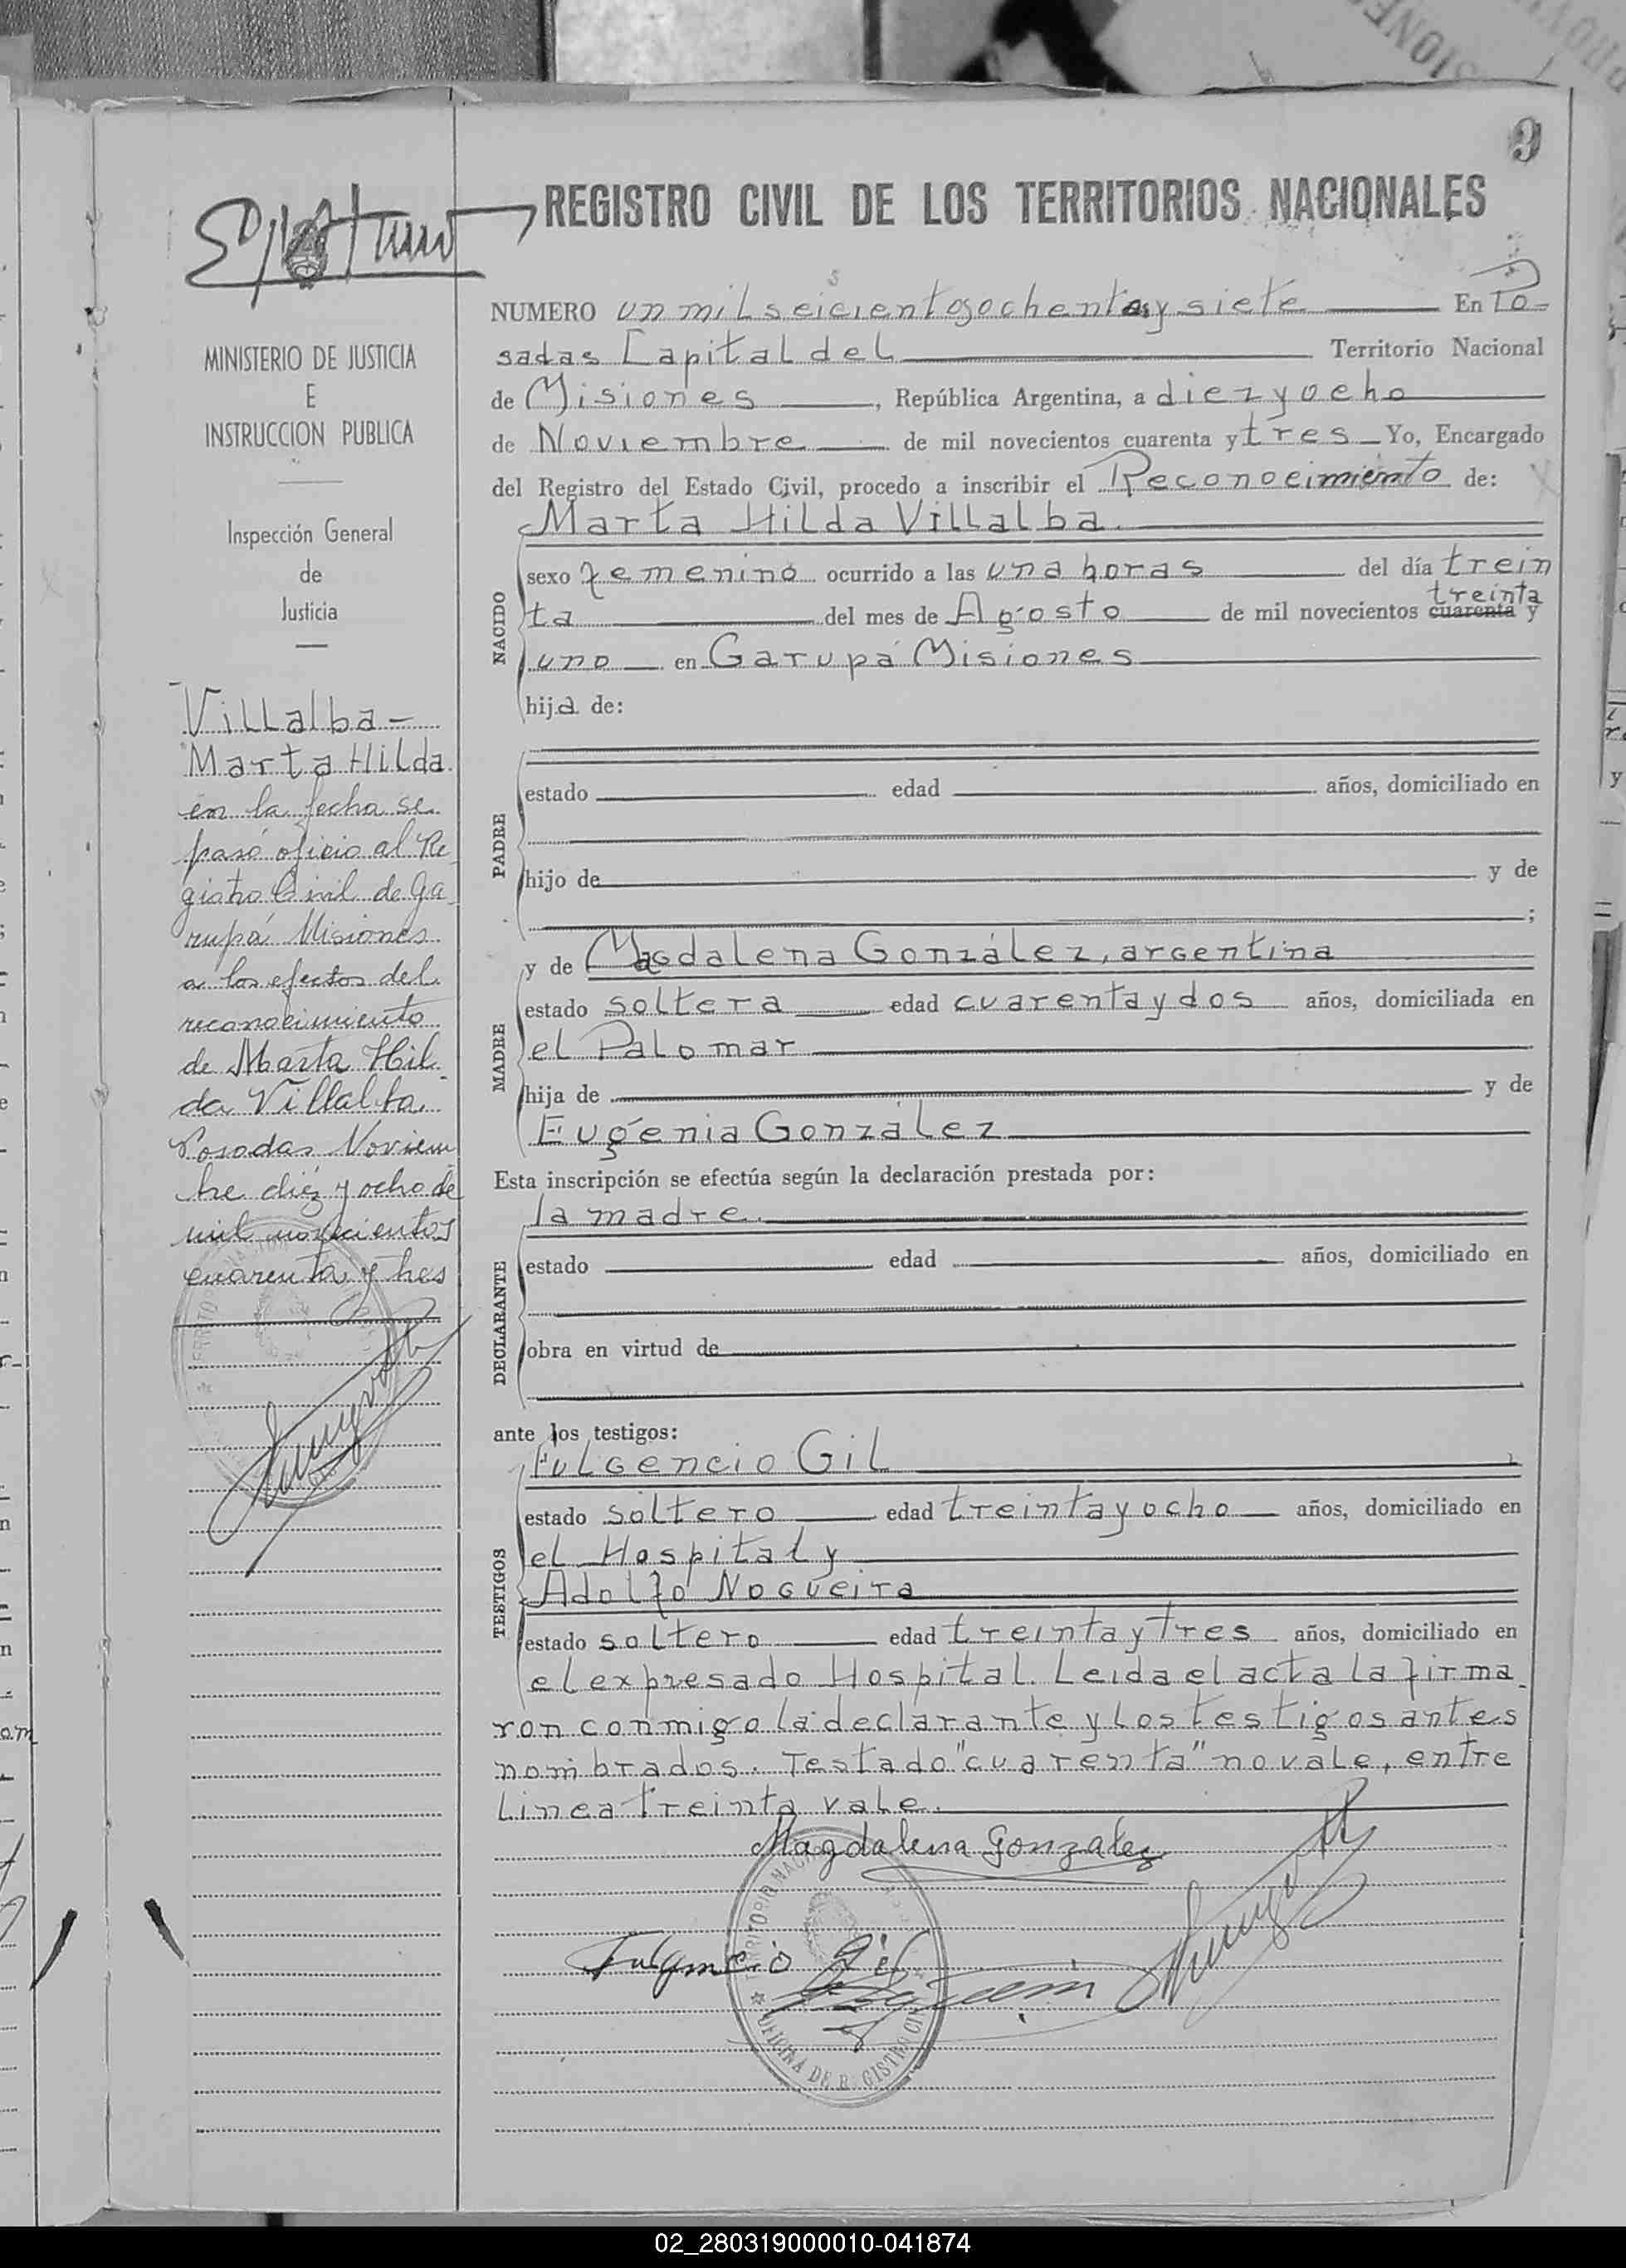 9
REGISTRO CIVIL DE LOS TERRITORIOS NACIONALES
MINISTERIO DE JUSTICIA
E
INSTRUCCION PUBLICA
Inspección General
de
Justicia
Villalba-
Marta Hilda
en la fecha se
pasó oficio al Re
gistro Civil de Ga
rupá Misiones
a los efectos del
reconocimiento
de Marta Hil
da Villalba.
Posadas, Noviem
bre diez y ocho de
mil novecientos
cuarenta y tres
NUMERO un mil seicientos ochenta y siete En Po-
sadas Capital del Territorio Nacional
de Misiones, República Argentina, a diez y ocho
de Noviembre de mil novecientos cuarenta y tres Yo, Encargado
del Registro del Estado Civil, procedo a inscribir el Reconocimiento de:
Marta Hilda Villalba.
NACIDO
sexo femenino ocurrido a las una horas del día trein
treinta
ta del mes de Agosto de mil novecientos cuarenta y
uno en Garupá Misiones
hija de:
PADRE
estado edad años, domiciliado en
hijo de y de
;
MADRE
y de Magdalena González, argentina
estado soltera edad cuarenta y dos años, domiciliada en
el Palomar
hija de y de
Eugenia González
Esta inscripción se efectúa según la declaración prestada por:
la madre.
DECLARANTE
estado edad años, domiciliado en
obra en virtud de
ante los testigos:
TESTIGOS
Fulgencio Gil
estado soltero edad treinta y ocho años, domiciliado en
el Hospital y
Adolfo Nogueira
estado soltero edad treinta y tres años, domiciliado en
el expresado Hospital. Leida el acta la firma
ron conmigo la declarante y los testigos antes
nombrados. Testado "cuarenta" no vale, entre
linea treinta vale.
Magdalena Gonzalez
Fulgencio Gil
TERRITORIO NAC
OFICINA DE R GISTRO CIV
02_280319000010-041874